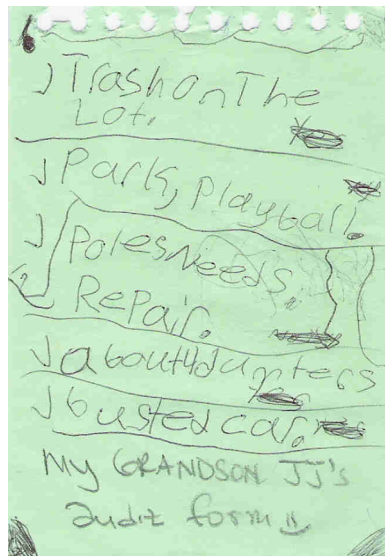 √ Trash On The
Lot.
√ Park, Playball.
√ Poles Needs
Repair.
√ about 4 dumsters
√ busted car.
MY GRANDSON JJ's
audit form